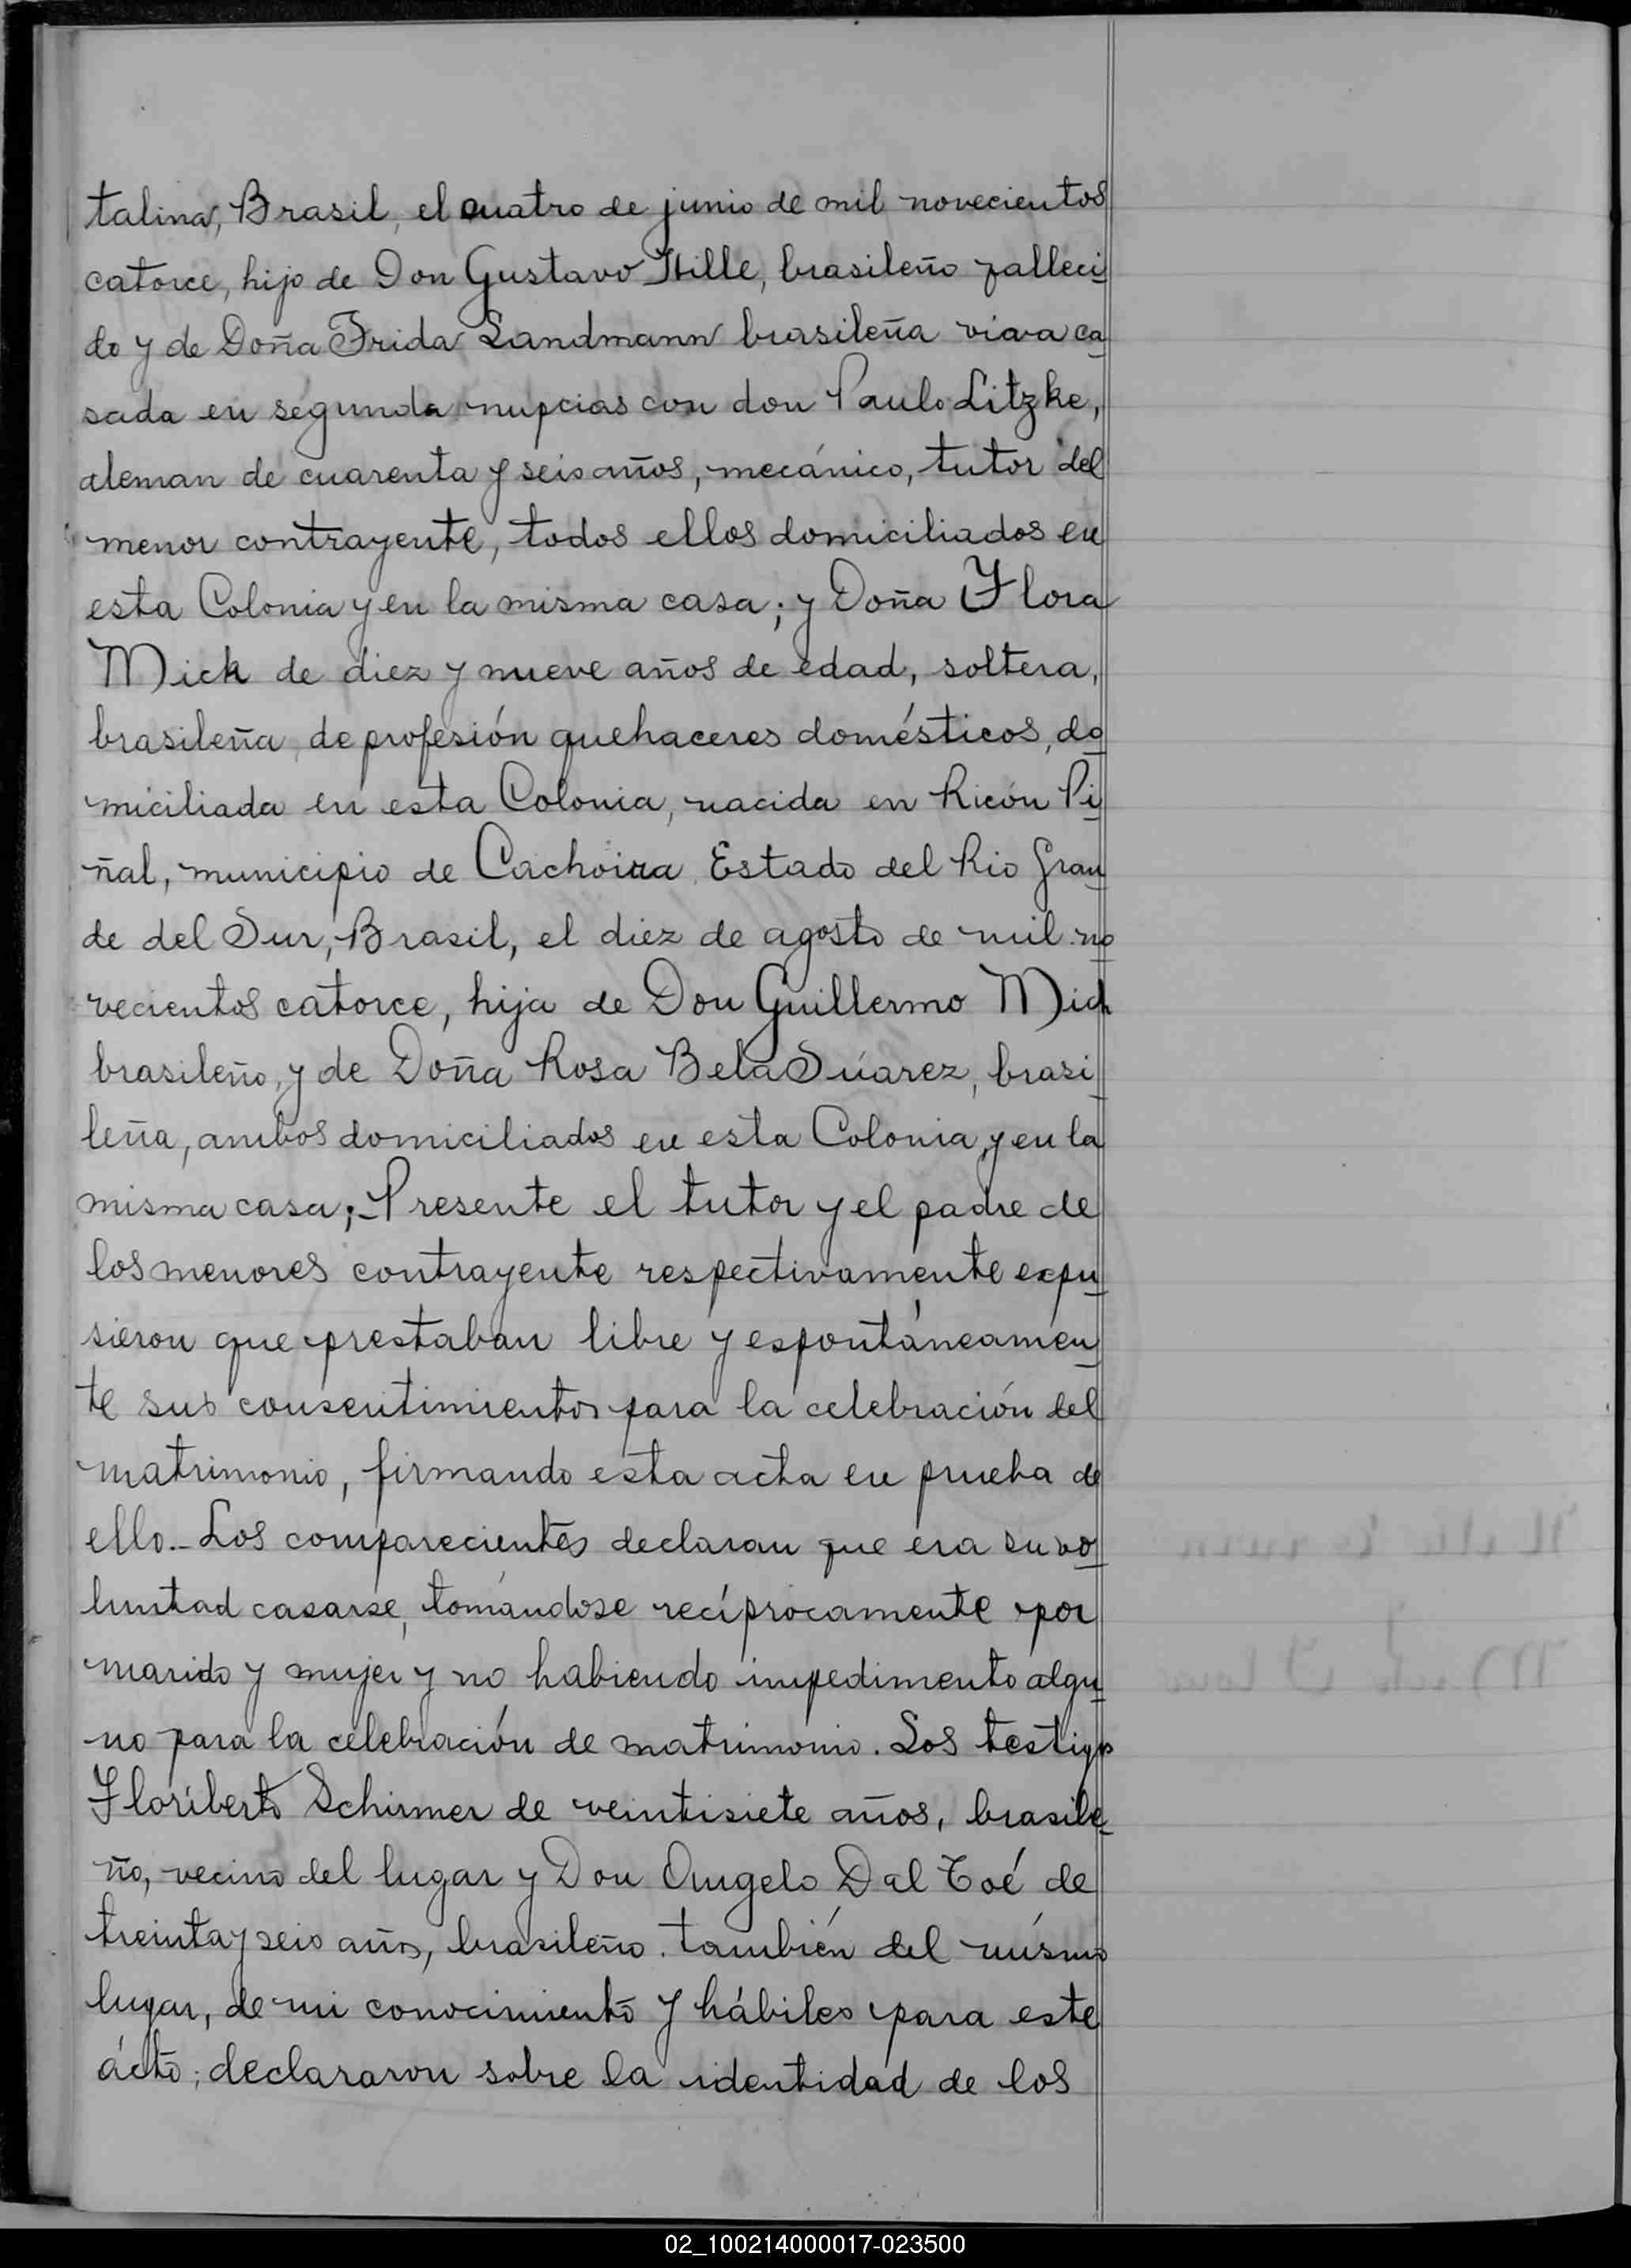 talina, Brasil, el cuatro de junio de mil novecientos
catorce, hijo de Don Gustavo Hille, brasileño falleci
do y de Doña Frida Landmann brasileña viava ca
sada en segunda nupcias con don Paulo Litzke,
aleman de cuarenta y seis años, mecánico, tutor del
menor contrayente, todos ellos domiciliados en
esta Colonia y en la misma casa; y Doña Flora
Mick de diez y nueve años de edad, soltera,
brasileña, de profesión quehaceres domésticos, do
miciliada en esta Colonia, nacida en Ricón Pi
ñal, municipio de Cachoira Estado del Rio Gran
de del Sur, Brasil, el diez de agosto de mil no
vecientos catorce, hija de Don Guillermo Mick
brasileño, y de Doña Rosa Bela Súarez, brasi
leña, ambos domiciliados en esta Colonia, y en la
misma casa;- Presente el tutor y el padre de
los menores contrayente respectivamente expu
sieron que prestaban libre y espontáneamen
te sus consentimientos para la celebración del
matrimonio, firmando esta acta en prueba de
ello.- Los comparecientes declaran que era su vo
luntad casarse, tomándose recíprocamente por
marido y mujer y no habiendo impedimento algu
no para la celebración de matrimonio. Los testigos
Floriberto Schirmer de veintisiete años, brasile
ño, vecino del lugar y Don Angelo Dal Toé de
treinta y seis años, brasileño. también del mismo
lugar, de mi conocimiento y hábiles para este
ácto; declararon sobre la identidad de los
02_100214000017-023500